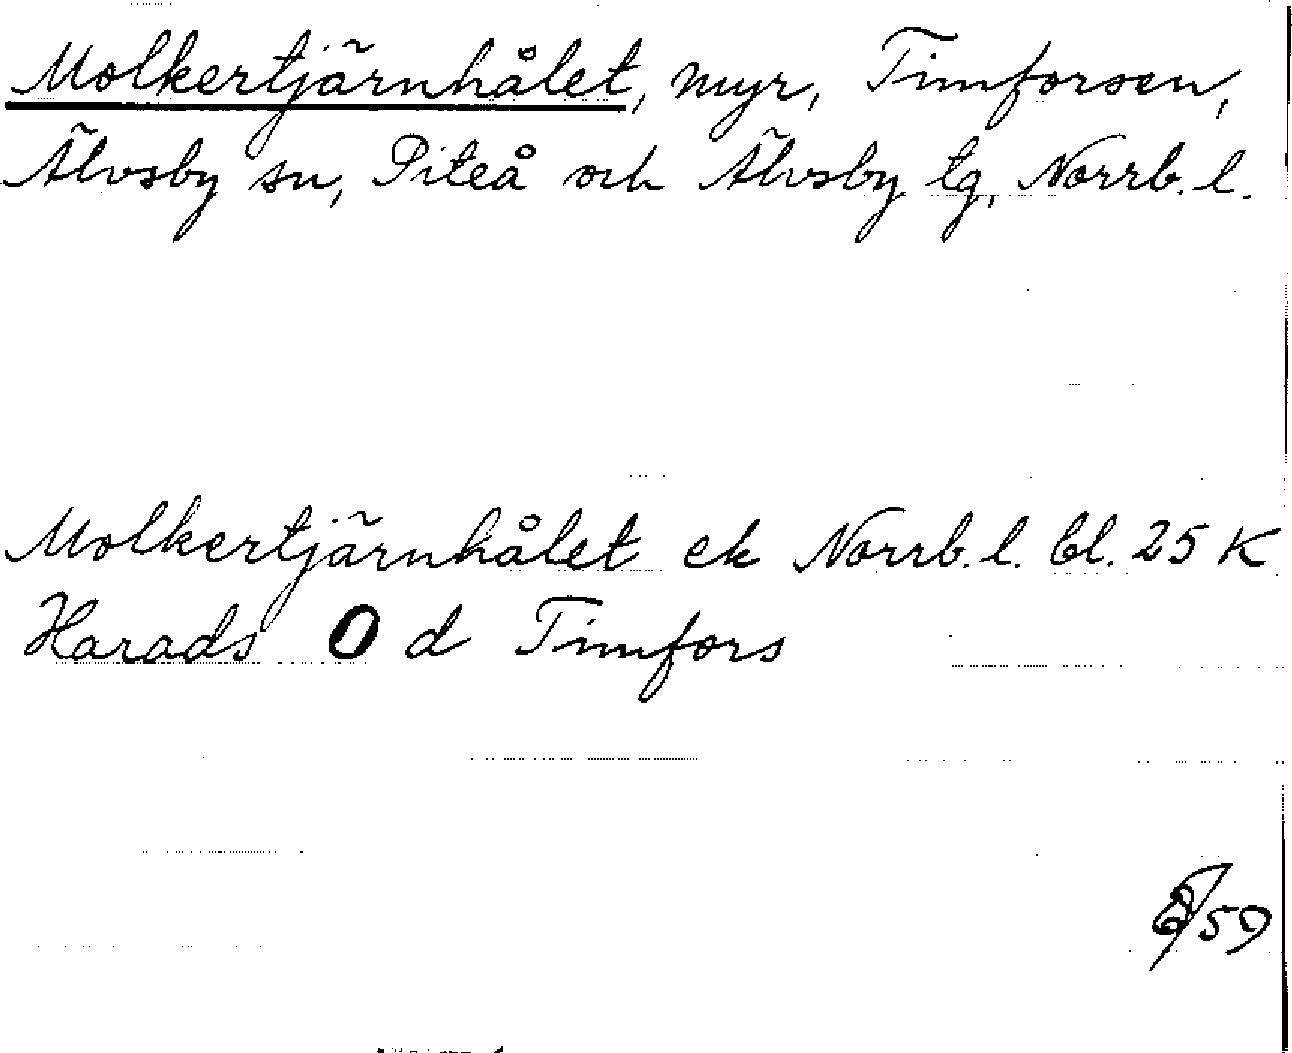 Molkertjärnhålet, myr, Timforsen,
Älvsby sn, Piteå och Älvsby tg, Norrb. l.
Molkertjärnhålet ek Norrb. l. bl. 25 K
Harads O d Timfors
/59